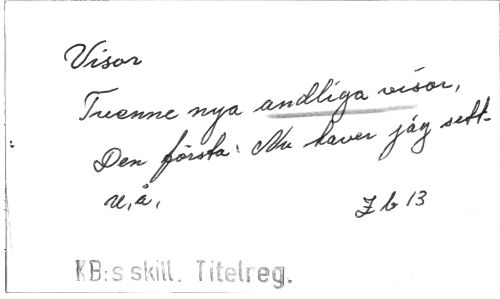 Visor
Tvenne nya andliga visor,
Den första: Nu haver jag sett-
u.å.
Z b 13
KB:s skill. Titelreg.